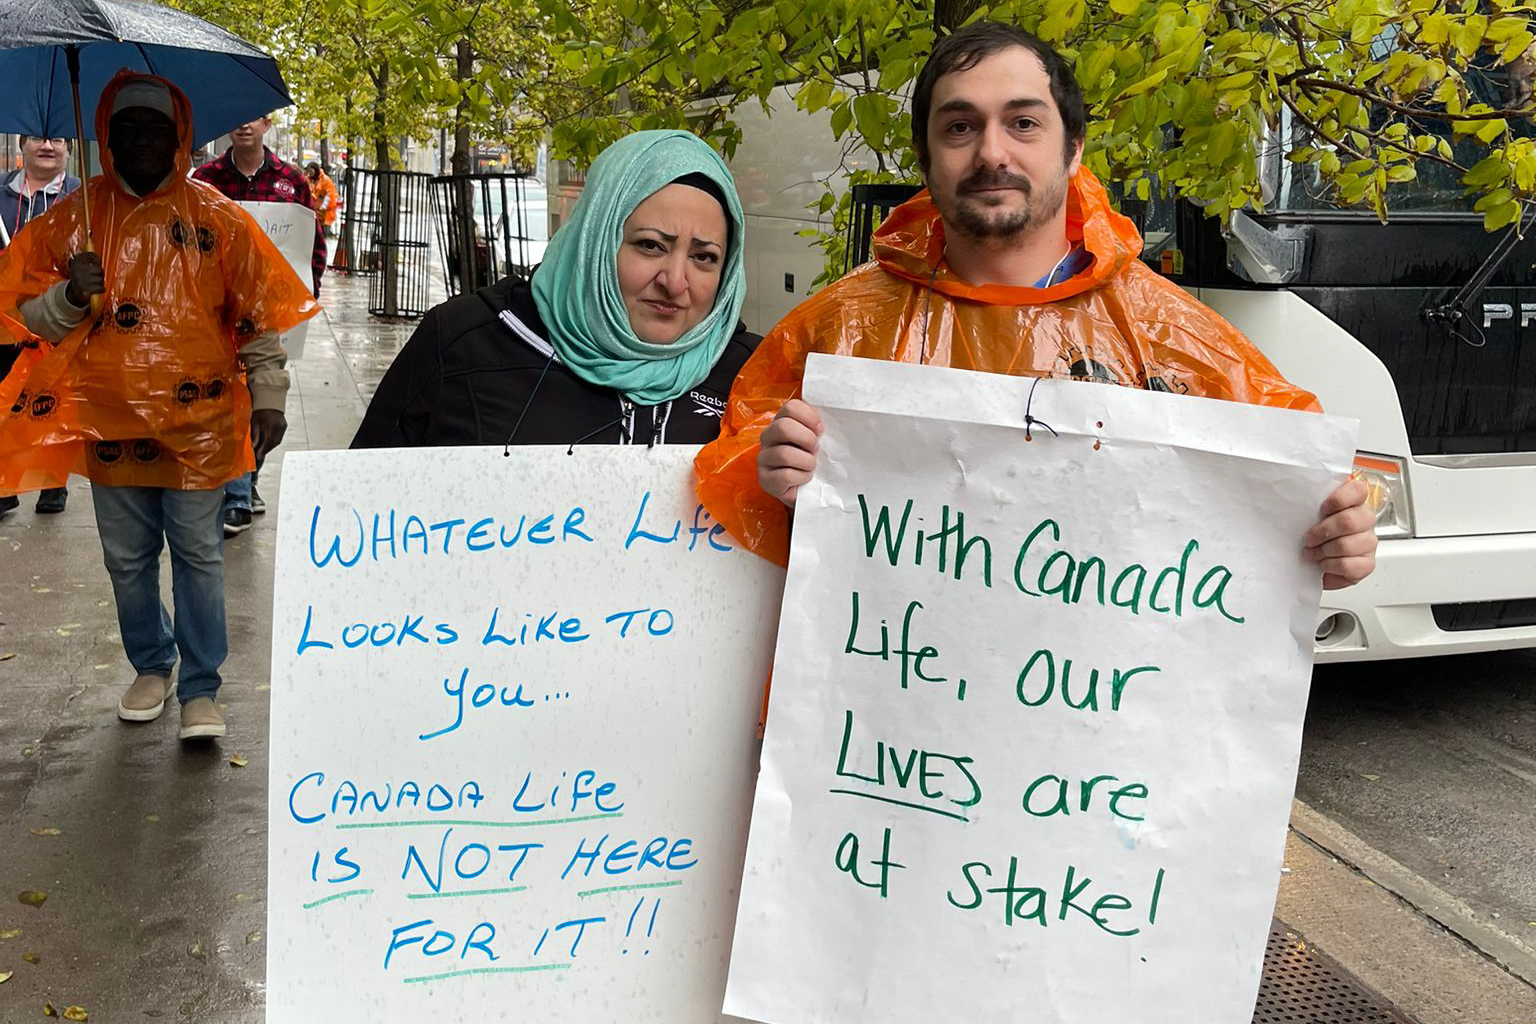 WHATEVER Life
LOOKS LIKE TO
you...
CANADA Life
IS NOT HERE
FOR IT!!
With Canada
Life, our
LIVES are
at stake!
Reebo
AFPC
PSAC AFPC
PSAC
AFPC
WAIT
PR